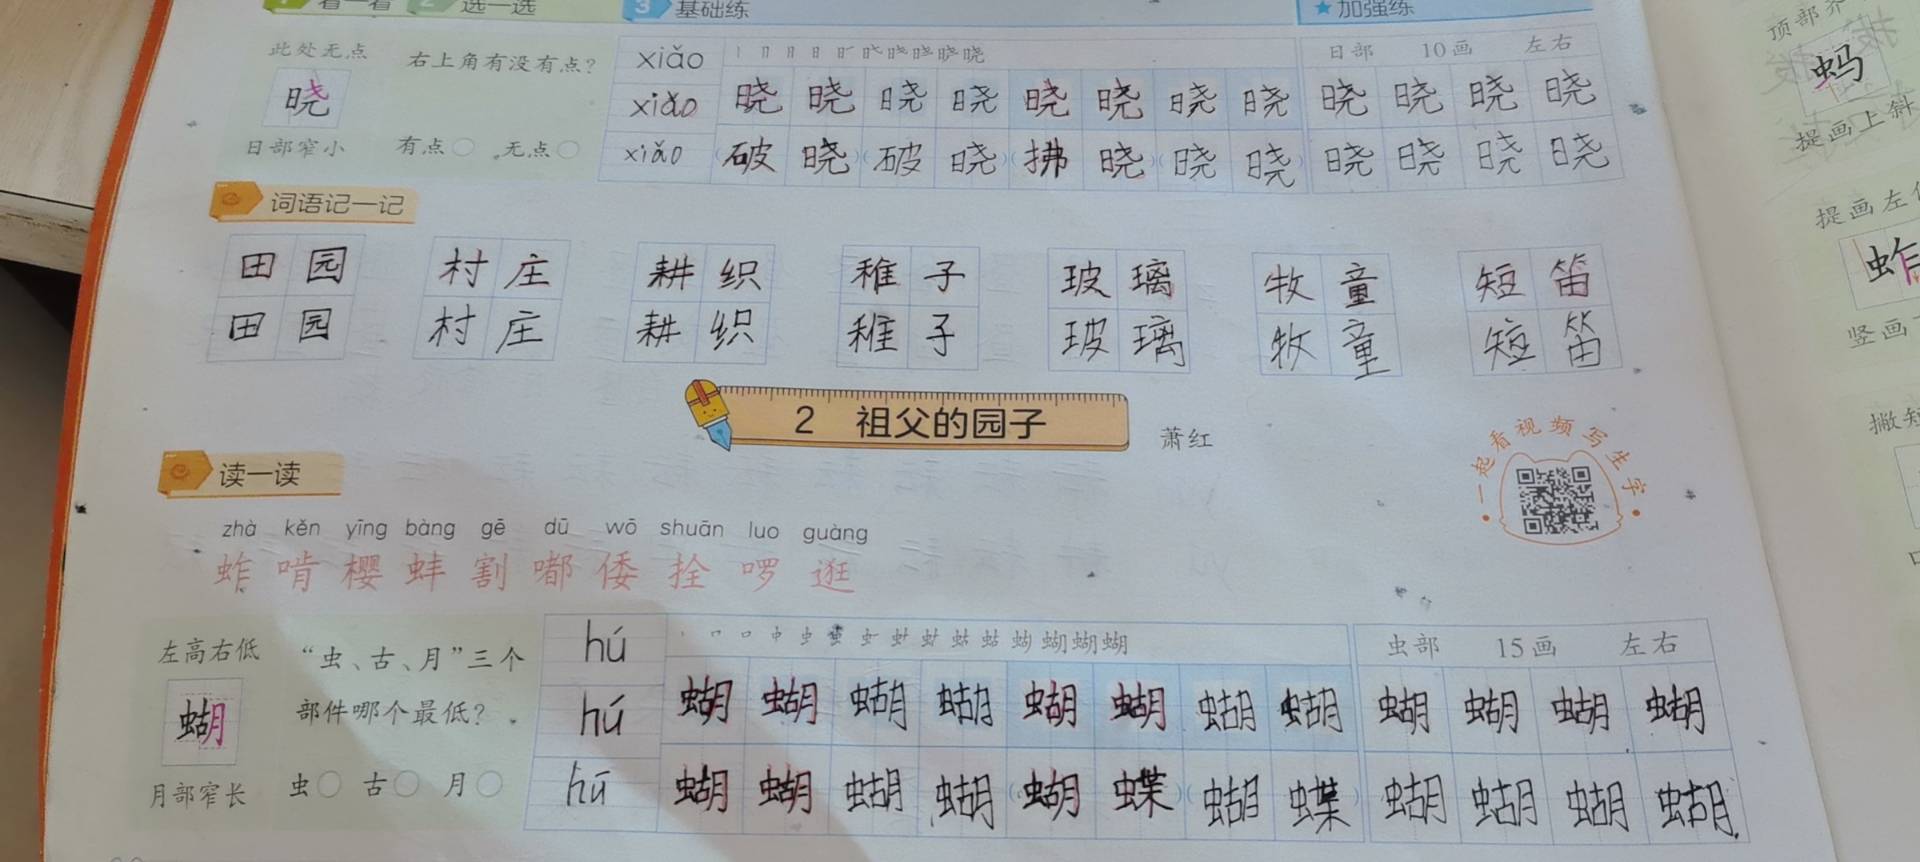 看一看 选一选 3 基础练 ★加强练
此处无点 右上角有没有点？
晓
日部窄小 有点○ 无点○
xiǎo 日部 10画 左右
xiǎo 晓 晓 晓 晓 晓 晓 晓 晓 晓 晓 晓 晓
xiǎo 破 晓 (破 晓) (拂 晓) (晓 晓) 晓 晓 晓 晓
词语记一记
田园 村庄 耕织 稚子 玻璃 牧童 短笛
田园 村庄 耕织 稚子 玻璃 牧童 短笛
2 祖父的园子
萧红
一起看视频写生字
读一读
zhà kěn yīng bàng gē dū wō shuān luo guàng
蚱 啃 樱 蚌 割 嘟 倭 拴 啰 逛
左高右低 “虫、古、月”三个
蝴 部件哪个最低？
月部窄长 虫○ 古○ 月○
hú 虫部 15画 左右
hú 蝴 蝴 蝴 蝴 蝴 蝴 蝴 蝴 蝴 蝴 蝴 蝴
hú 蝴 蝴 蝴 蝴 (蝴 蝶) (蝴 蝶) 蝴 蝴 蝴 蝴
蚂
提画上斜
提画左
蚱
竖画